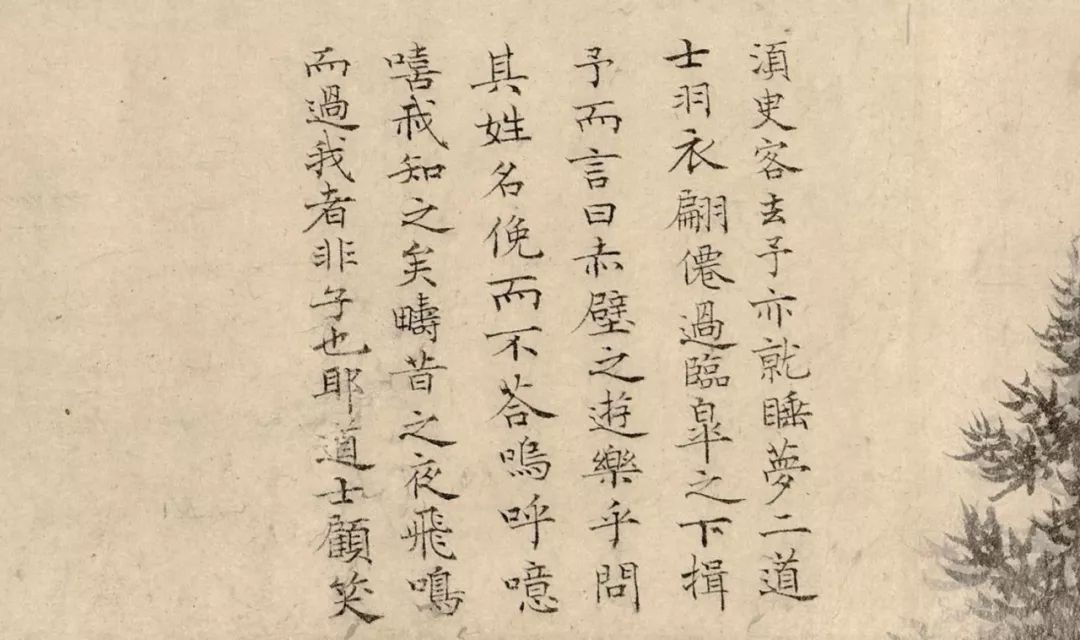 湏臾客去予亦就睡夢二道
士羽衣翩僊過臨皐之下揖
予而言曰赤壁之遊樂乎問
其姓名俛而不荅嗚呼噫
嘻我知之矣疇昔之夜飛鳴
而過我者非子也耶道士顧笑